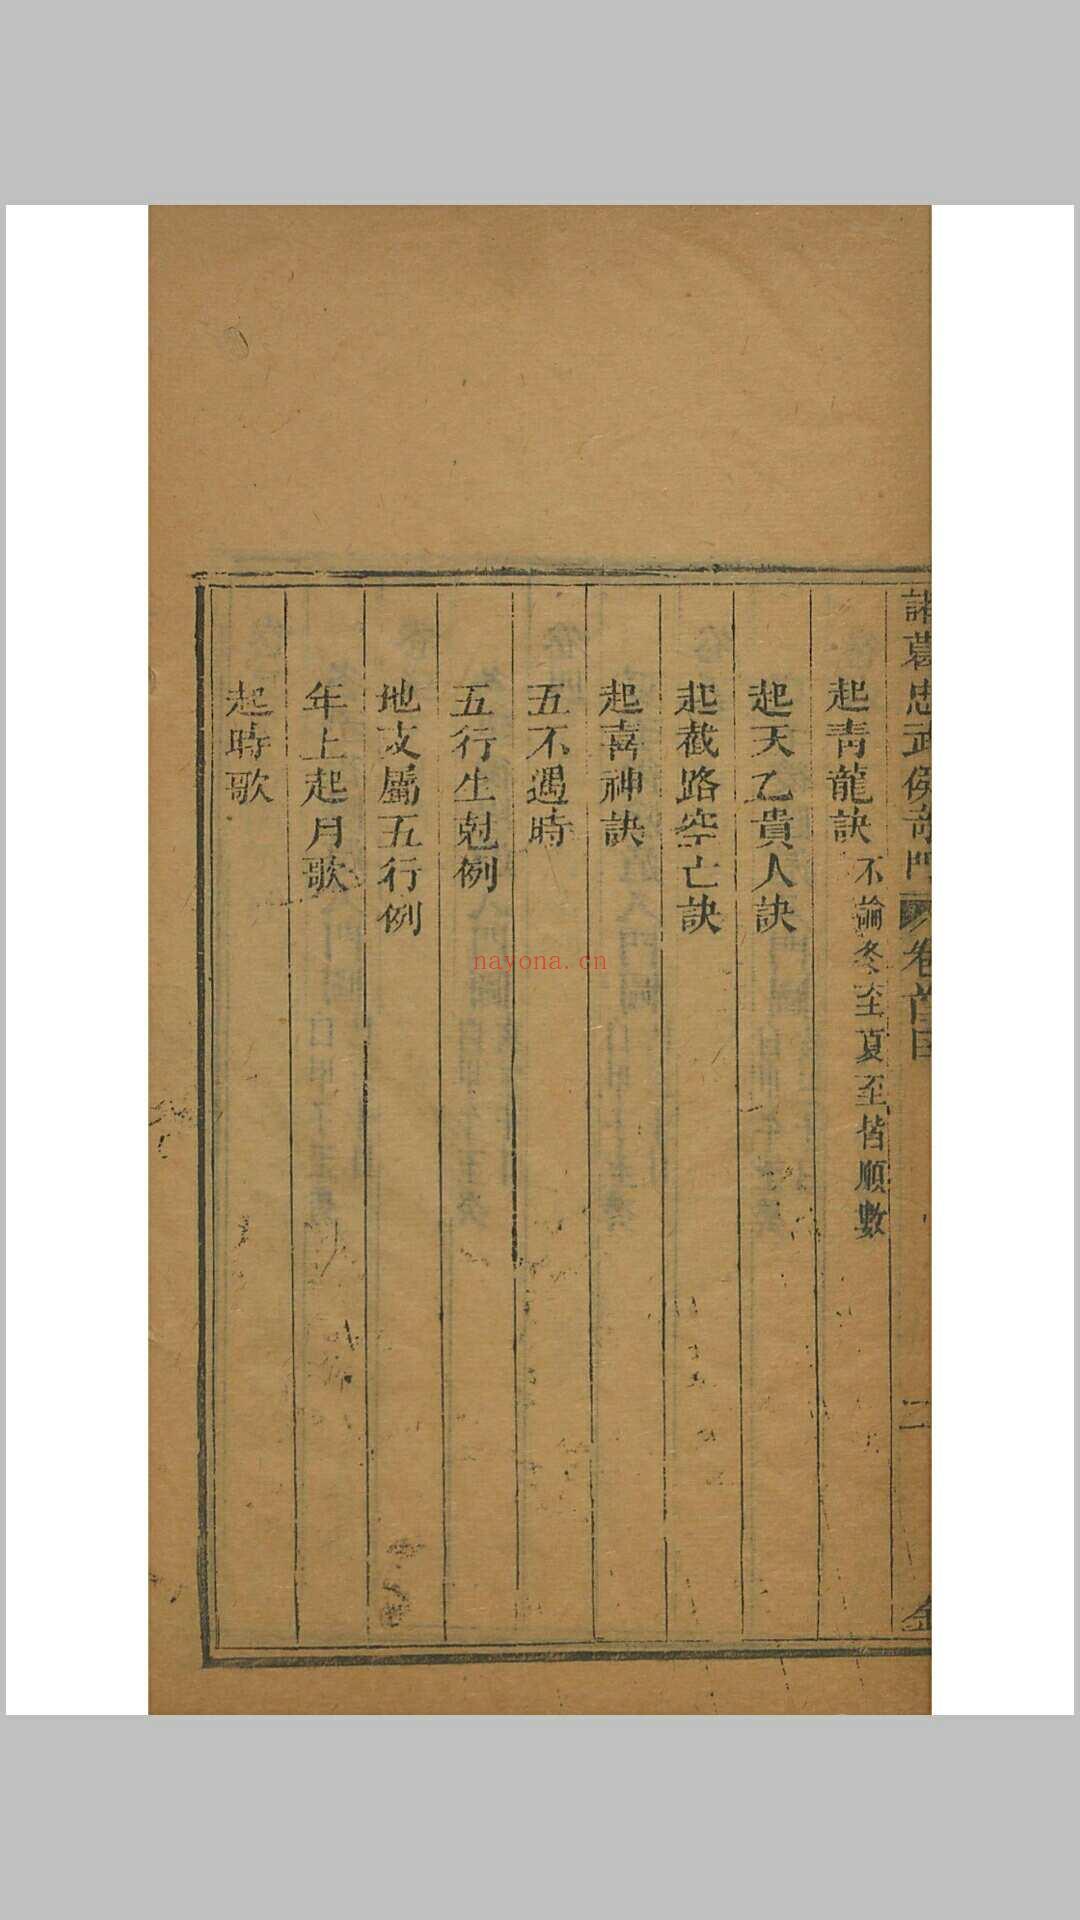 諸葛忠武侯奇門 卷首目 二
起靑龍訣 不論冬至夏至皆順數
起天乙貴人訣
起截路空亡訣
起喜神訣
五不遇時
五行生尅例
地支屬五行例
年上起月歌
起時歌
nayona.cn